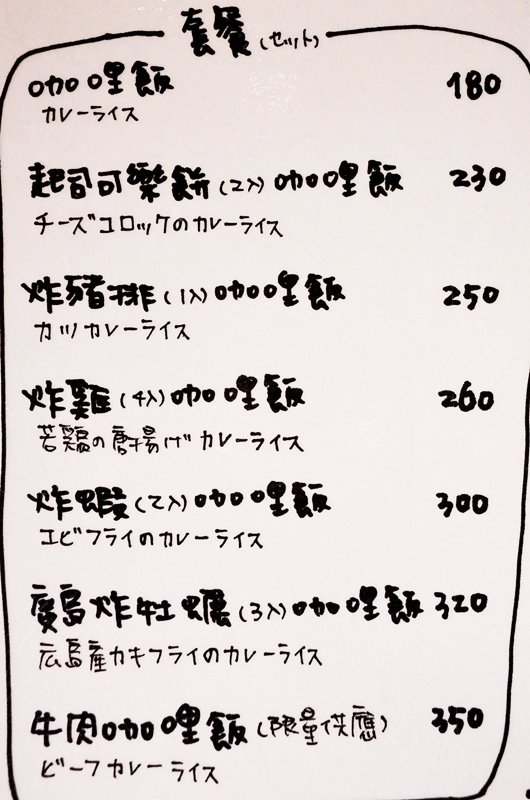 套餐(セット)
咖哩飯 180
カレーライス
起司可樂餅(2入)咖哩飯 230
チーズコロッケのカレーライス
炸豬排(1入)咖哩飯 250
カツカレーライス
炸雞(4入)咖哩飯 260
若鶏の唐揚げカレーライス
炸蝦(2入)咖哩飯 300
エビフライのカレーライス
廣島炸牡蠣(3入)咖哩飯 320
広島産カキフライのカレーライス
牛肉咖哩飯(限量供應) 350
ビーフカレーライス